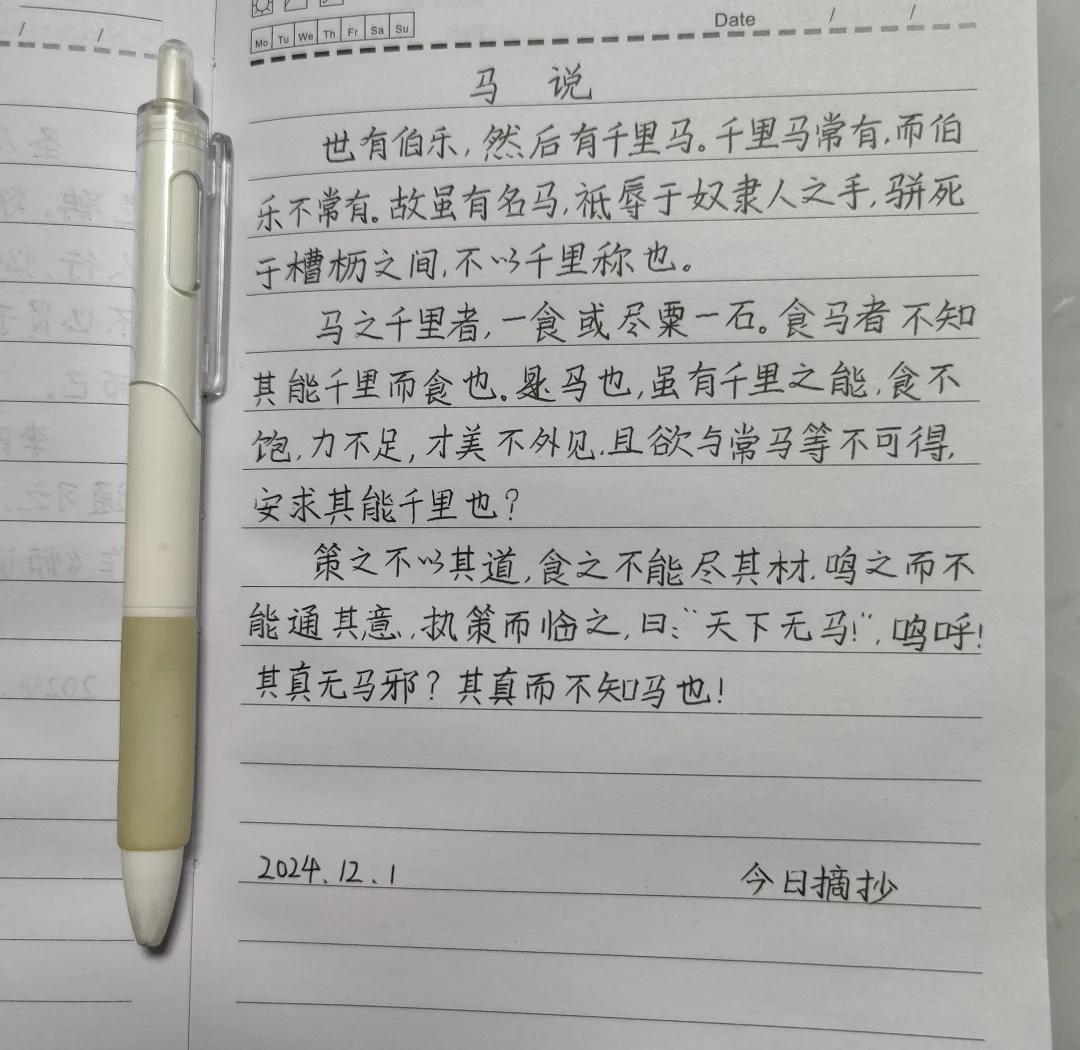 Mo Tu We Th Fr Sa Su
Date / /
马 说
世有伯乐,然后有千里马。千里马常有,而伯
乐不常有。故虽有名马,祗辱于奴隶人之手,骈死
于槽枥之间,不以千里称也。
马之千里者,一食或尽粟一石。食马者不知
其能千里而食也。是马也,虽有千里之能,食不
饱,力不足,才美不外见,且欲与常马等不可得,
安求其能千里也?
策之不以其道,食之不能尽其材,鸣之而不
能通其意,执策而临之,曰:“天下无马!”,鸣呼!
其真无马邪?其真而不知马也!
2024.12.1 今日摘抄